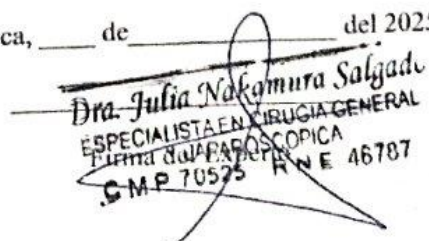 ca, ____ de ____________ del 2025
Dra. Julia Nakamura Salgado
ESPECIALISTA EN CIRUGIA GENERAL
LAPAROSCOPICA
Firma del Experto
CMP 70525 RNE 46787